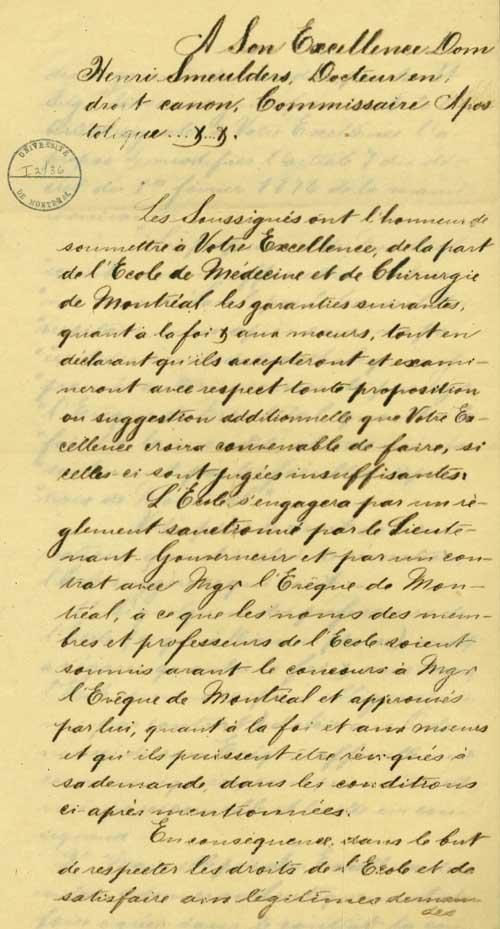 A Son Excellence Dom
Henri Smeulders, Docteur en
droit canon, Commissaire Apos
tolique...&...&.
UNIVERSITÉ
I2/36
DE MONTRÉAL
Les Soussignés ont l'honneur de
soumettre à Votre Excellence, de la part
de l'Ecole de Médecine et de Chirurgie
de Montréal les garanties suivantes,
quant à la foi & aux moeurs, tout en
déclarant qu'ils accepteront et exami-
neront avec respect toute proposition
ou suggestion additionnelle que Votre Ex-
cellence croira convenable de faire, si
celles-ci sont jugées insuffisantes.
L'Ecole s'engagera par un rè-
glement sanctionné par le Lieute-
nant-Gouverneur et par un con-
trat avec Mgr l'Evêque de Mon-
tréal, à ce que les noms des mem-
bres et professeurs de l'Ecole soient
soumis avant le concours à Mgr
l'Evêque de Montréal et approuvés
par lui, quant à la foi et aux moeurs
et qu'ils puissent etre révoqués à
sa demande, dans les conditions
ci-après mentionnées.
En conséquence, dans le but
de respecter les droits de l'Ecole et de
satisfaire aux légitimes deman
des